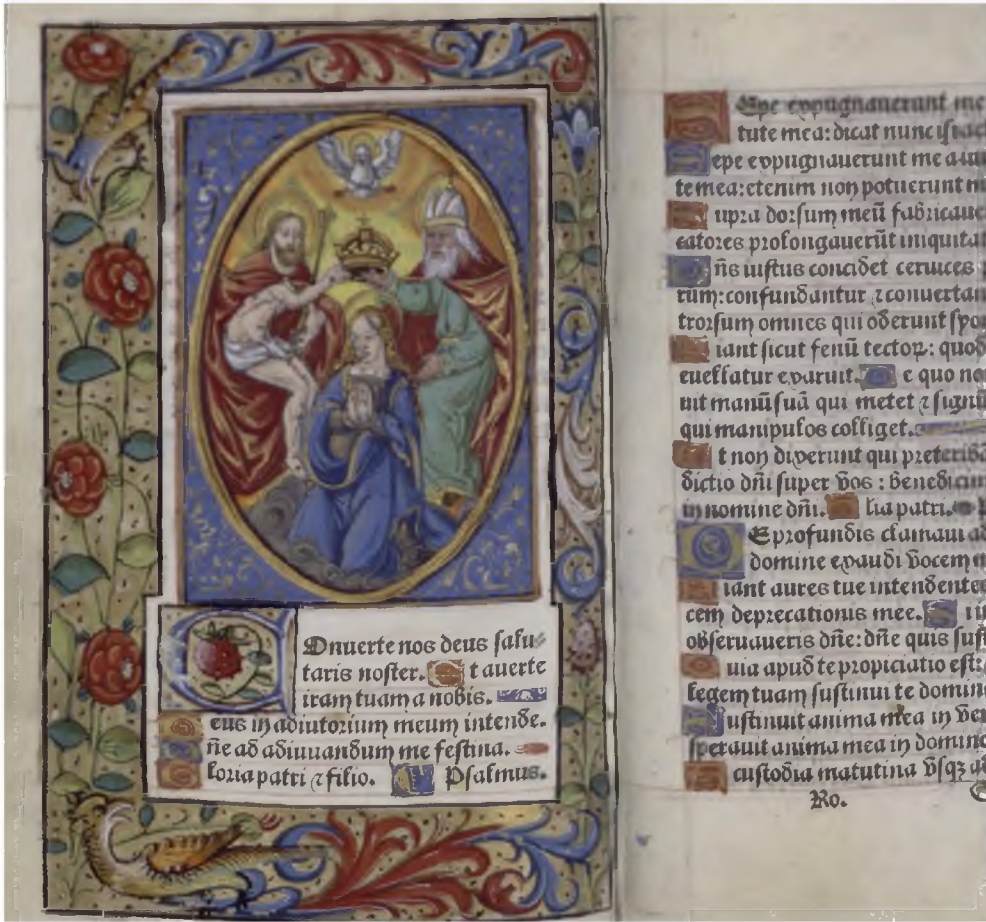 Onuerte nos deus salu⸗
taris noster. Et auerte
iram tuam a nobis.
eus in adiutorium meum intende.
Dñe ad adiuuandum me festina.
Gloria patri ⁊ filio. Psalmus.
Sepe expugnauerunt me
tute mea: dicat nunc isrl
Sepe expugnauerunt me a iu
te mea: etenim non potuerunt m
Supra dorsum meũ fabricaue
catores prolongauerũt iniquitat
Dñs iustus concidet ceruices
rum: confundantur ⁊ conuertan
trorsum omnes qui oderunt syon
Fiant sicut fenũ tectoꝝ: quod
euellatur exaruit. De quo no
uit manũ suã qui metet ⁊ sinũ
qui manipulos colliget.
Et non dixerunt qui preterib
dictio dñi super vos: benedicim
in nomine dñi. Glia patri.
De profundis clamaui ad
domine exaudi vocem m
Fiant aures tue intendentes
cem deprecationis mee. Si i
obseruaueris dñe: dñe quis sust
Quia apud te propiciatio est:
legem tuam sustinui te domin
Sustinuit anima mea in ver
sperauit anima mea in domino
A custodia matutina vsqꝫ ad
Ro.